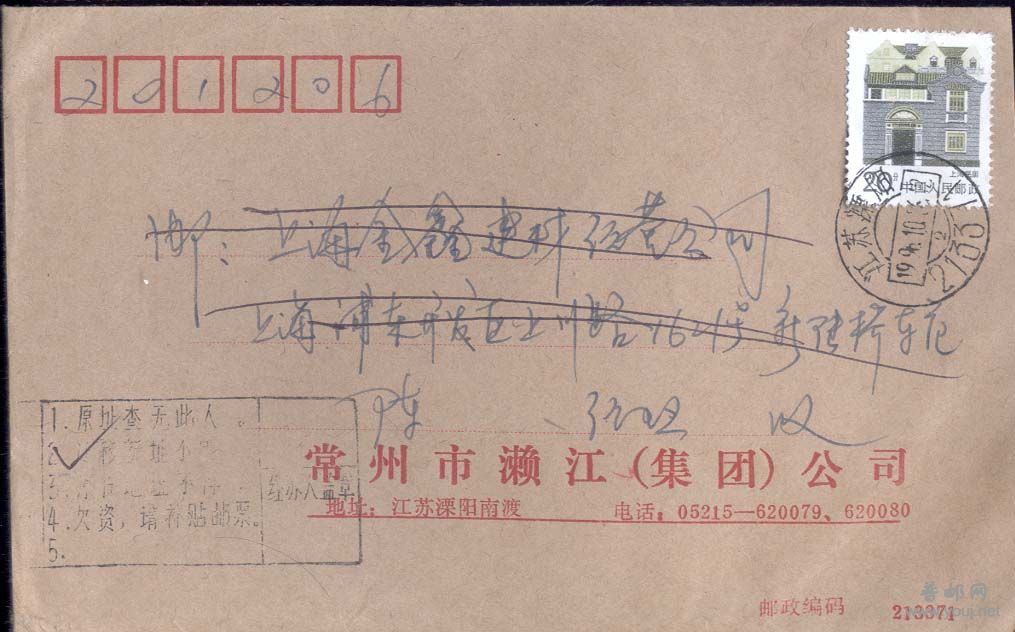 201206
上海民居
20分
中国人民邮政
江苏溧
213371
邮：上海金鑫建材经营公司
上海浦东开发区上川路1621号
陈 经理 收
1.原址查无此人。
2.迁移新址不明
3.原书地址不详
4.欠资，请补贴邮票。
5.
经办人盖章
常州市濑江(集团)公司
地址：江苏溧阳南渡 电话：05215—620079、620080
邮政编码 213371
普邮网
www.youj.net